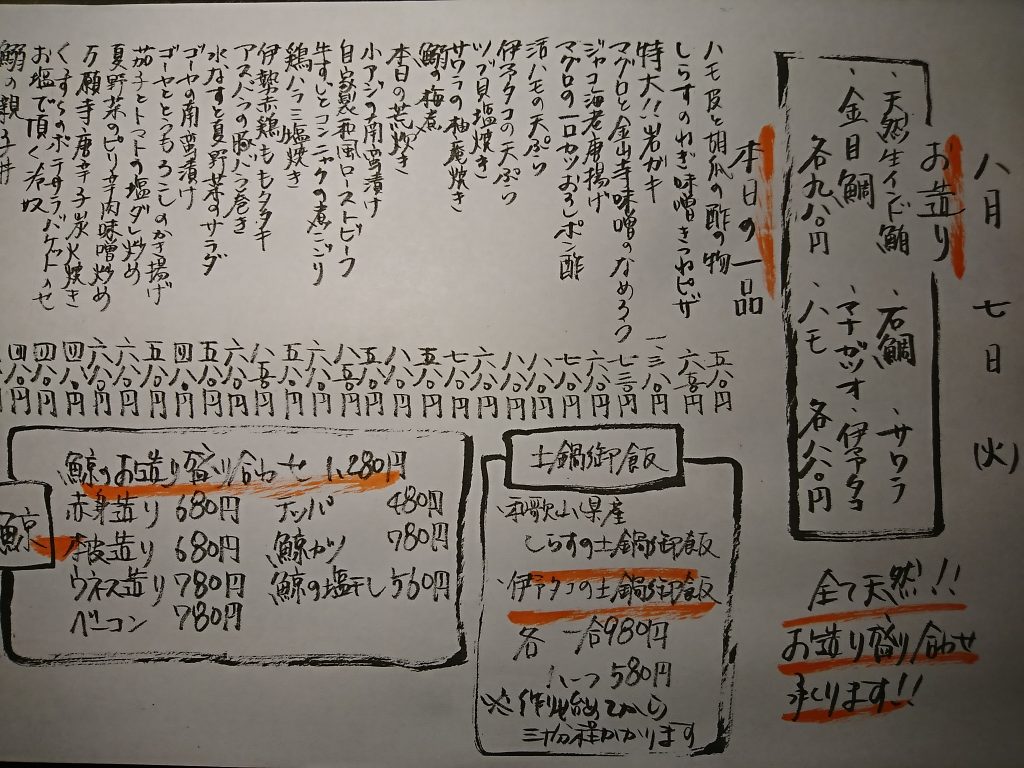 八月 七日 (火)
お造り
・天然生インド鮪 ・石鯛 ・サワラ
・金目鯛 ・マナガツオ ・伊予タコ
各九八〇円 ・ハモ 各八八〇円
全て天然!!
お造り盛り合わせ
承ります!!
本日の一品
ハモ皮と胡瓜の酢の物 五八〇円
しらすのねぎ味噌きつねピザ 六五〇円
特大!!岩ガキ 一三八〇円
マグロと金山寺味噌のなめろう 七三〇円
ジャコ海老唐揚げ 六八〇円
マグロの一口カツおろしポン酢 七八〇円
活ハモの天ぷら 八八〇円
伊予タコの天ぷら 八八〇円
ツブ貝塩焼き 六八〇円
サワラの柚庵焼き 七八〇円
鰯の梅煮 五八〇円
本日の荒炊き 八八〇円
小アジの南蛮漬け 五八〇円
自家製和風ローストビーフ 八五〇円
牛すじとコンニャクの煮こごり 六八〇円
鶏ハラミ塩焼き 五八〇円
伊勢赤鶏ももタタキ 八五〇円
アスパラの豚バラ巻き 六八〇円
水なすと夏野菜のサラダ 五八〇円
ゴーヤの南蛮漬け 四八〇円
ゴーヤととうもろこしのかき揚げ 五八〇円
茄子とトマトの塩ダレ炒め 六八〇円
夏野菜のピリ辛肉味噌炒め 六八〇円
万願寺唐辛子炭火焼き 四八〇円
くずし冷のポテサラバケットのせ 四八〇円
お塩で頂く冷奴 四八〇円
鰯の親子丼
土鍋御飯
・和歌山県産
しらすの土鍋御飯
・伊予タコの土鍋御飯
各 一合980円
ハーフ580円
※作り始めてから
三十分程かかります
鯨
鯨のお造り盛り合わせ 1,280円
赤身造り 680円 テッパ 480円
本皮造り 680円 鯨カツ 780円
ウネス造り 780円 鯨の塩干し 560円
ベーコン 780円